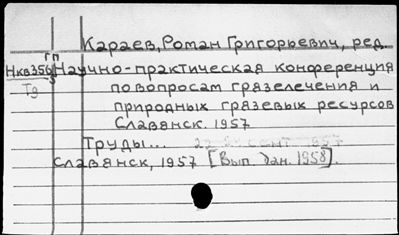 Караев, Роман Григорьевич, ред.
гп
Нкв356 Научно-практическая конференция
Тд по вопросам грязелечения и
природных грязевых ресурсов
Славянск. 1957
Труды... сент. 1957
Славянск, 1957 [Вып. дан. 1958].